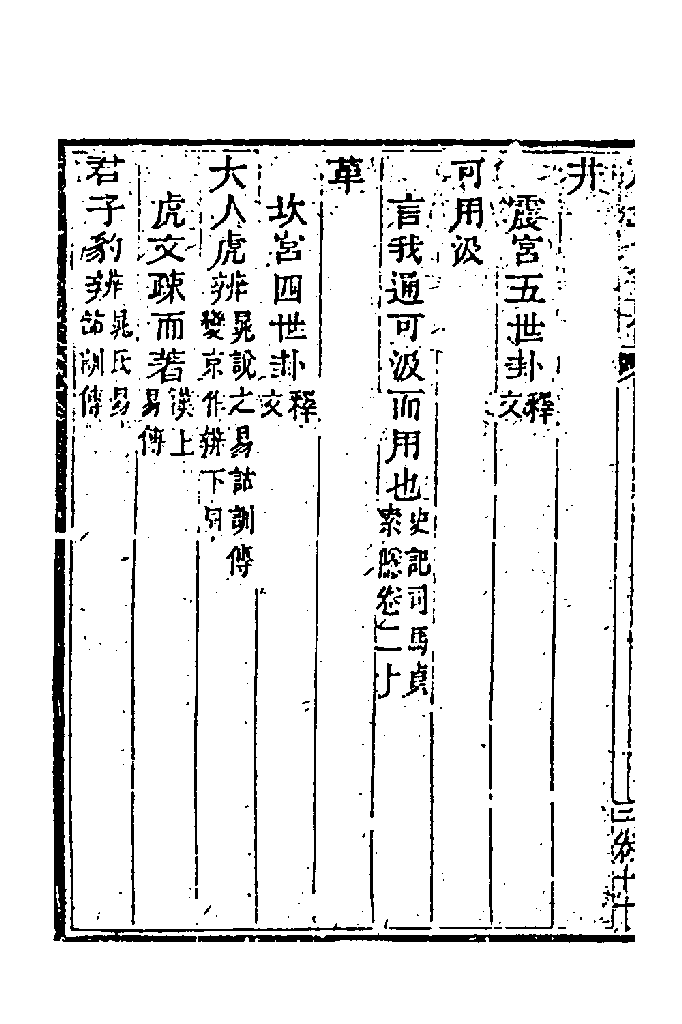 井
震宮五世卦釋文
可用汲
言我通可汲而用也史記司馬貞索隱卷二十
革
坎宮四世卦釋文
大人虎辨晁說之易詁訓傳變京作辨下同
虎文疎而著漢上易傳
君子豹辨晁氏易詁訓傳